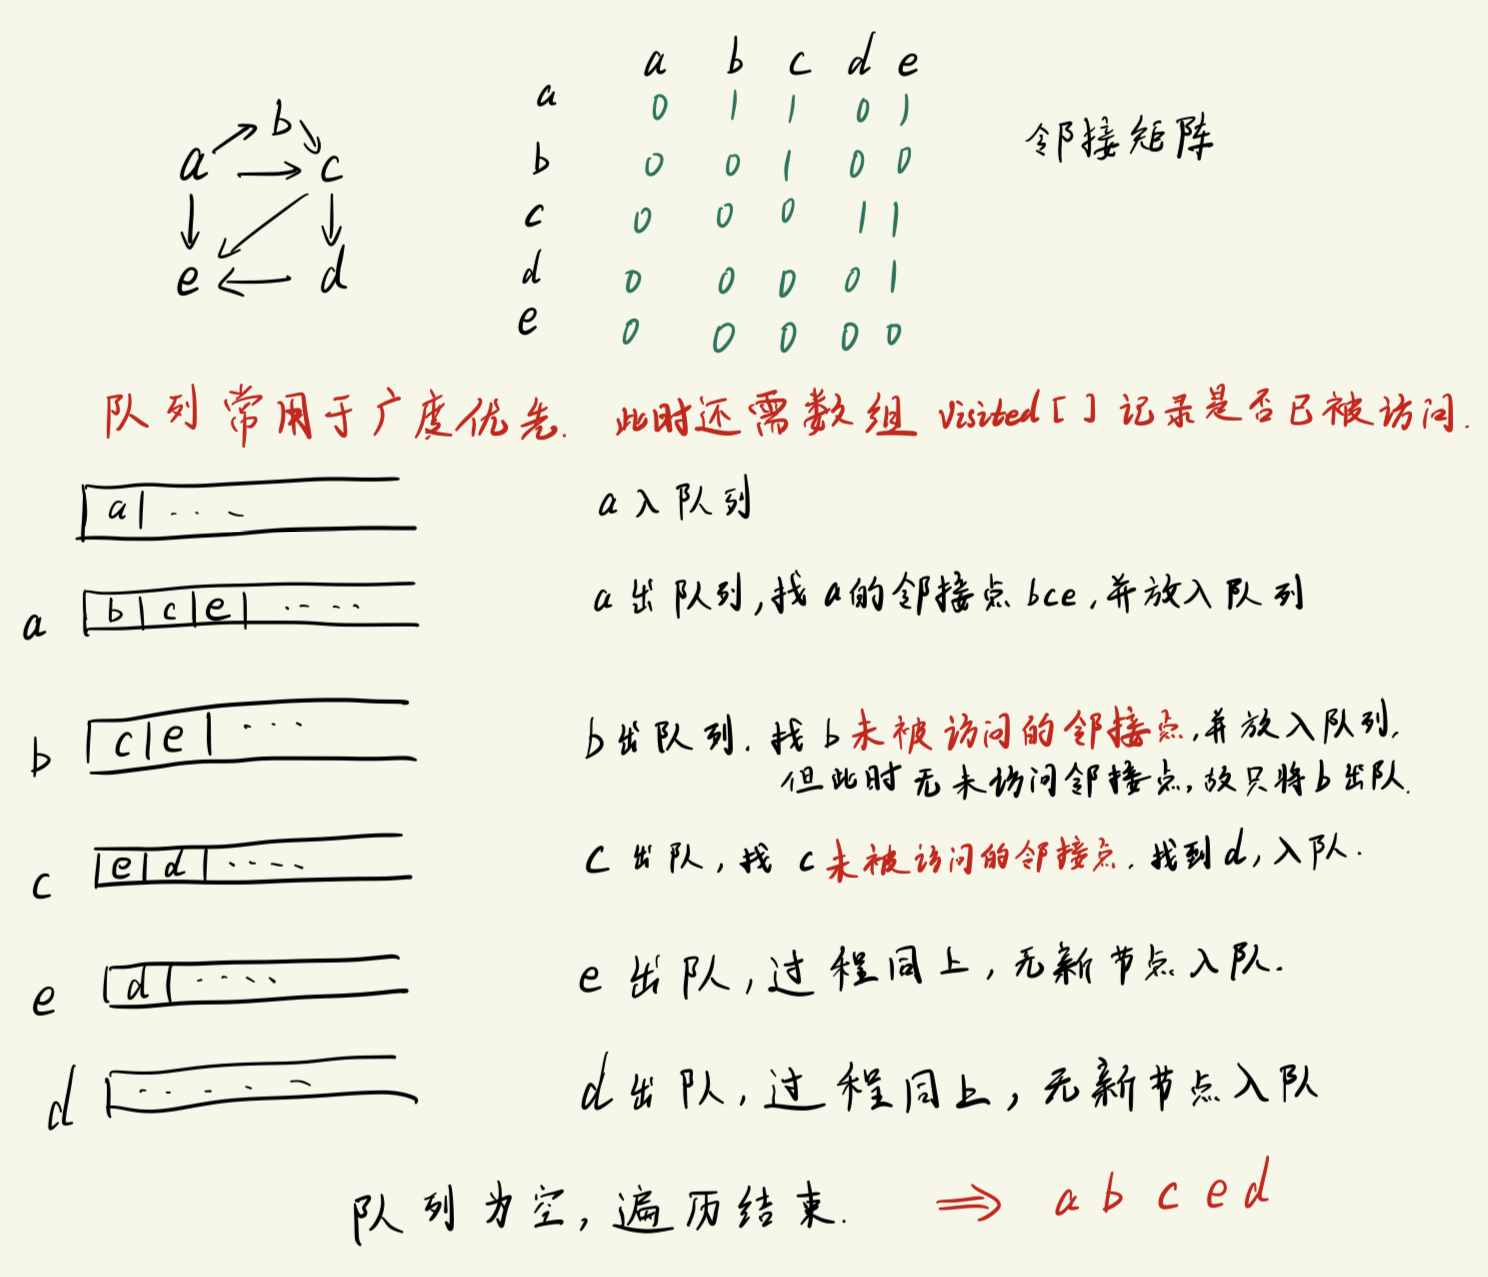 a b c d e
a 0 1 1 0 1
b 0 0 1 0 0
c 0 0 0 1 1
d 0 0 0 0 1
e 0 0 0 0 0
邻接矩阵
b
a c
e d
队列常用于广度优先. 此时还需数组 visited[ ] 记录是否已被访问.
a ... a入队列
a b c e ..... a出队列,找a的邻接点bce,并放入队列
b c e ... b出队列.找b未被访问的邻接点,并放入队列,
但此时无未访问邻接点,故只将b出队.
c e d ..... c出队,找c未被访问的邻接点.找到d,入队.
e d ..... e出队,过程同上,无新节点入队.
d ..... d出队,过程同上,无新节点入队
队列为空,遍历结束. ⇒ a b c e d